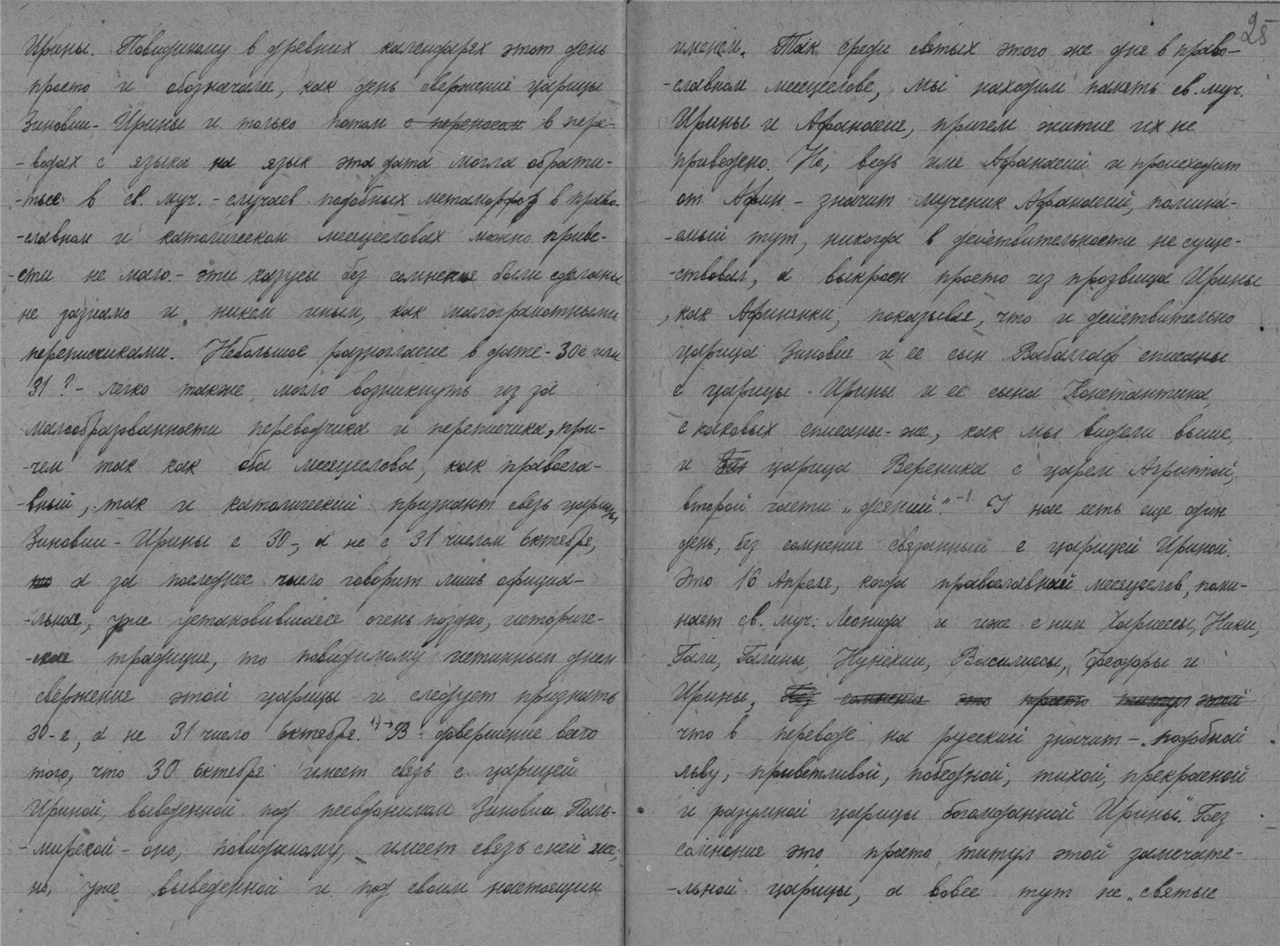 Ирины. Повидимому в древних календарях этот день
просто и обозначался, как день свержения царицы
Зиновии-Ирины и только потом с переносом в пере-
-водах с языка на язык эта дата могла обрати-
-ться в св. муч. - случаев подобных метаморфоз в право-
-славном и католическом месяцесловах можно приве-
-сти не мало - эти казусы без сомнения были сделаны
не зазнамо и никем иным, как малограмотными
переписчиками. Небольшое разногласие в дате - 30е или
31? - легко также могло возникнуть из за
малообразованности переводчика и переписчика, при-
-чем так как оба месяцеслова, как правосла-
-вный, так и католический признают связь царицы
Зиновии-Ирины с 30-, а не с 31 числом Октября,
а за последнее число говорит лишь официа-
-льная, уже установившаяся очень поздно, историче-
-ская традиция, то повидимому истинным днем
свержения этой царицы и следует признать
30-е, а не 31 число Октября. 1) В довершение всего
того, что 30 Октября имеет связь с царицей
Ириной, выведенной под псевдонимом Зиновии Паль-
-мирской - оно, повидимому, имеет связь с ней же,
но, уже выведенной и под своим настоящим
25
именем. Так среди святых этого же дня в право-
-славном месяцеслове, мы находим память св. муч.
Ирины и Афанасия, причем житие их не
приведено. Но, ведь имя Афанасий и происходит
от Афин - значит мученик Афанасий, помина-
-емый тут, никогда в действительности не суще-
-ствовал, а выкроен просто из прозвища Ирины
, как Афинянки, показывая, что и действительно
царица Зиновия и ее сын Вабаллаф списаны
с царицы Ирины и ее сына Константина,
с каковых списаны-же, как мы видели выше,
и царица Вереника с царем Агриппой,
второй части „деяний". У нас есть еще один
день, без сомнения связанный с царицей Ириной.
Это 16 Апреля, когда православный месяцеслов, поми-
нает св. муч: Леонида и иже с ним Хариессы, Ники,
Гали, Галины, Нунехии, Василиссы, Феодоры и
Ирины, Без сомнения это просто титул этой
что в переводе на русский значит - „подобной
льву, приветливой, победной, тихой, прекрасной
и разумной царицы богомданной Ирины". Без
сомнения это просто титул этой замечате-
-льной царицы, а вовсе тут не „святые